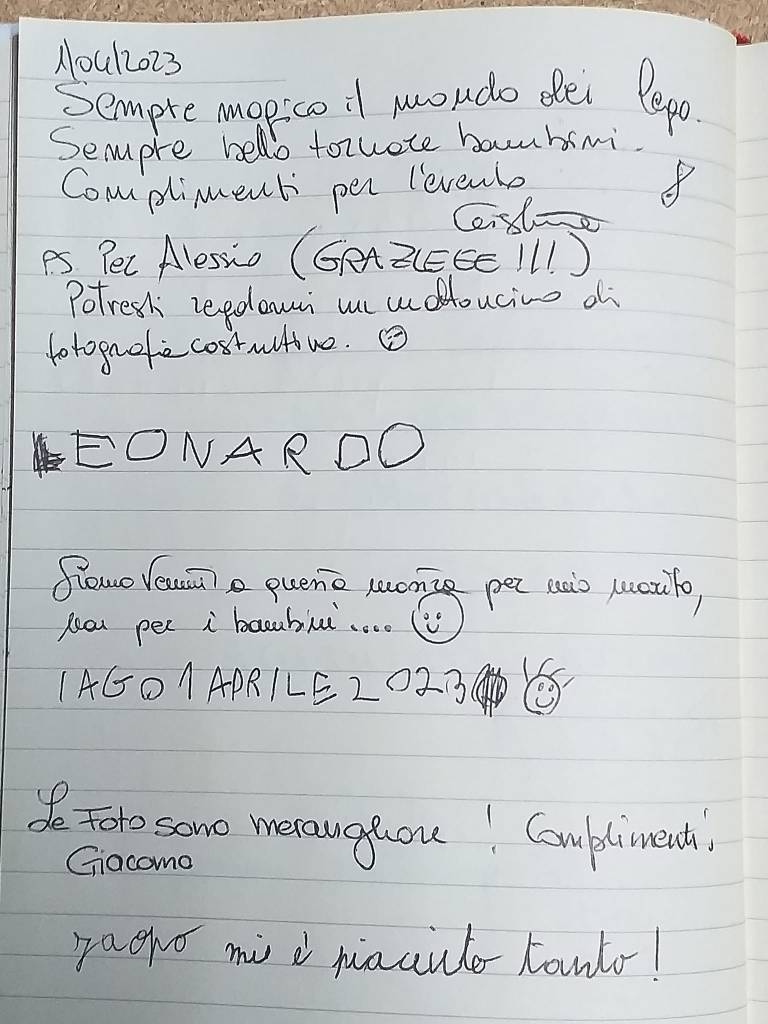 1/04/2023
Sempre magico il mondo dei lego.
Sempre bello tornare bambini.
Complimenti per l'evento
PS Per Alessio (GRAZIEEE!!!)
Potresti regalarmi un mattoncino di
fotografia costruttiva.
LEONARDO
Siamo venuti a questa mostra per mio marito,
non per i bambini....
IAGO 1 APRILE 2023
Le Foto sono meravigliose! Complimenti!
Giacomo
mi è piaciuto tanto!